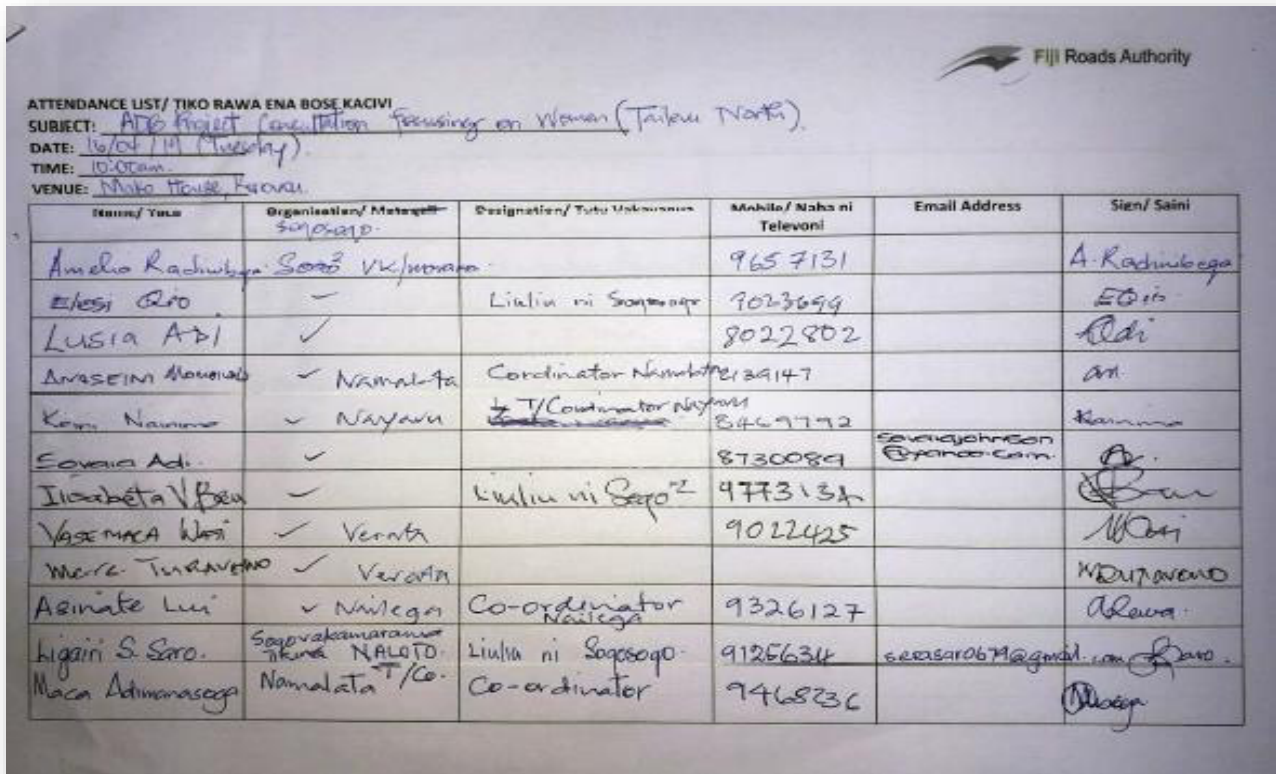 Fiji Roads Authority
ATTENDANCE LIST/ TIKO RAWA ENA BOSE KACIVI
SUBJECT: ADB Project Consultation focusing on Women (Tailevu North).
DATE: 16/04/19 (Tuesday).
TIME: 10:00am.
VENUE: Mako House, Korovou.
Name/ Yaca Organisation/ Mataqali Designation/ Tutu Vakavanua Mobile/ Naba ni Televoni Email Address Sign/ Saini
sogosogo.
Amelia Radinibeqa VK/marama 9657131 A. Radinibeqa
Elesi Qio Liuliu ni Sogosogo 9023699 EQio
LUSIA ADI ✓ 8022802 Adi
✓ Namalata Cordinator Namalata 2139147
✓ Nayavu T/Coordinator Nayavu 8469792
Sovaia Adi. ✓ 8730089
Ilisabeta V. ✓ Liuliu ni Sogo² 977313
VASEMACA Wasi ✓ Verata 9022425 Wasi
✓ Verata
Asinate Lui ✓ Nailega Co-ordinator Nailega 9326127
Ligairi S. Saro. Sogovakamarama Tikina NALOTO. Liuliu ni Sogosogo. 9125634 serasaro679@gmail.com Saro.
Maca Adimanasoga Namalata T/Co. Co-ordinator 9468236